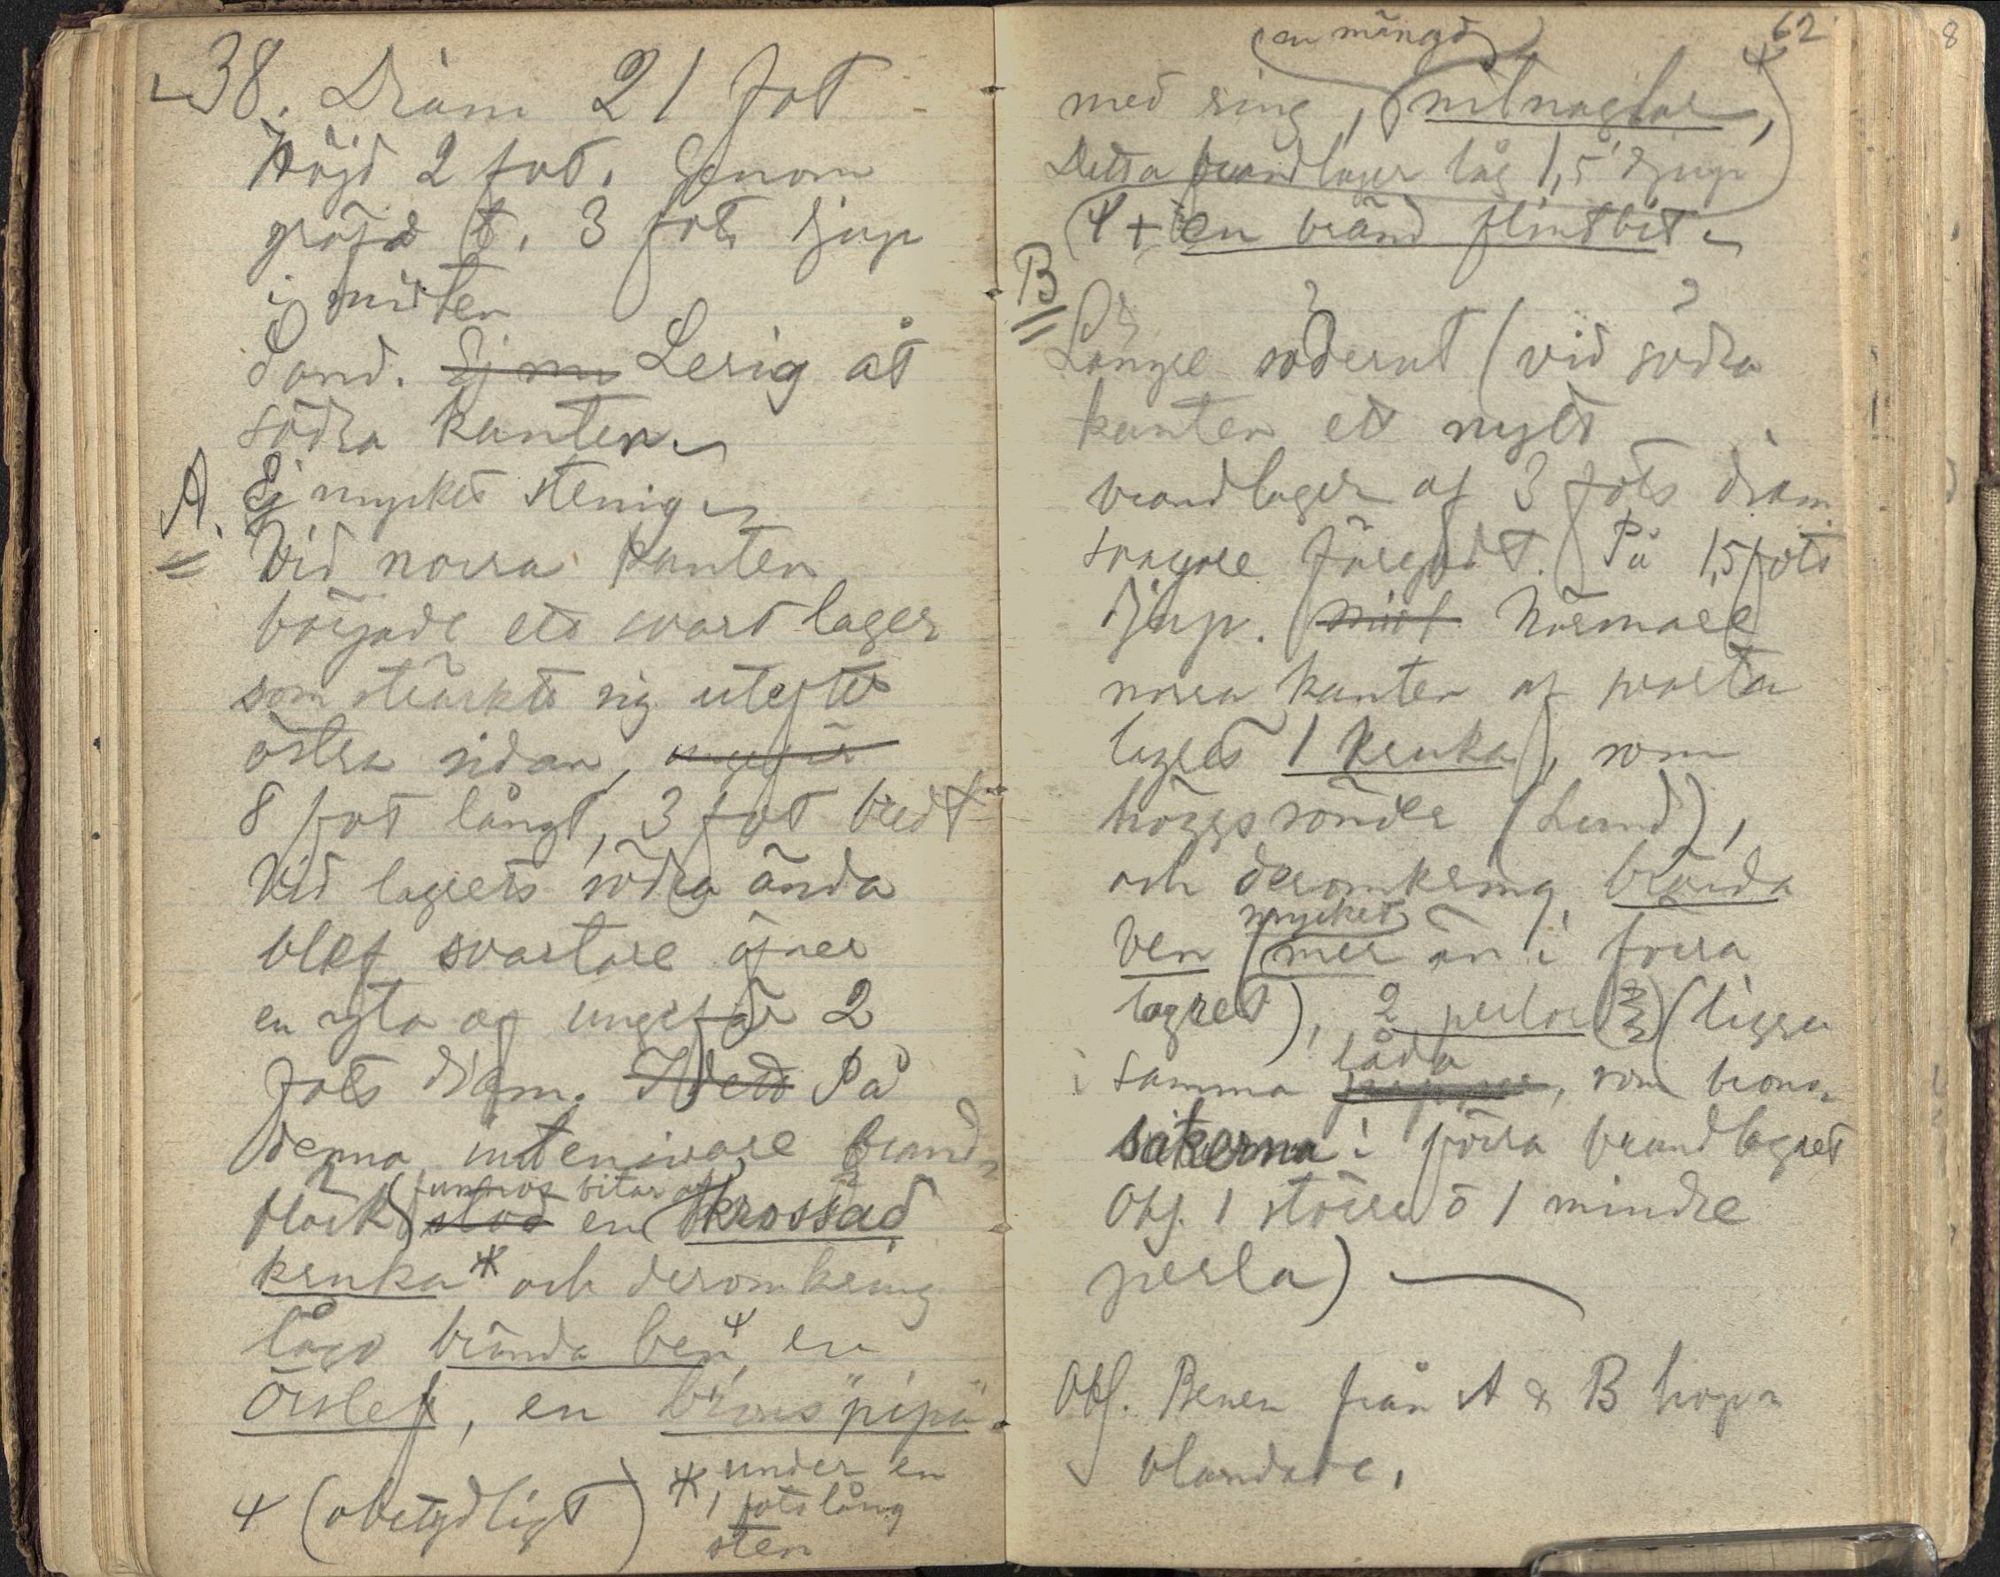 38. Diam 21 fot
Höjd 2 fot. Genom
gräfd t. 3 fots djup
i midten
Sand. Ej my Lerig åt
södra kanten.
A. Ej mycket stenig
Vid norra kanten
började ett svart lager
som sträckte sig utefter
östra sidan,
8 fot långt, 3 fot bredt
Vid lagrets södra ända
blef svartare öfver
en yta af ungefär 2
fots diam. På
denna intensivare brand-
fläck stod bitar af en krossad
kruka * och deromkring
lågo brända ben, en
Örslef, en brons "pipa"
(obetydligt)
* under en
1 fots lång
sten
62
en mängd
med ring, nitnaglar,
Detta brandlager låg 1,5' djup
+ en bränd flintbit
B
Längre söderut (vid södra
kanten ett nytt
brandlager af 3 fots diam.
svagare färgadt. På 1,5 fots
djup. Närmare
norra kanten af svarta
lagret 1 kruka, som
höggs sönder (Lund),
och deromkring brända
ben (mycket mer än i förra
lagret), 2 perlor (ligga
i samma låda, som brons-
sakerna i förra brandlagret
Obs. 1 större o 1 mindre
perla)
Obs. Benen från A & B hop-
blandade.
8